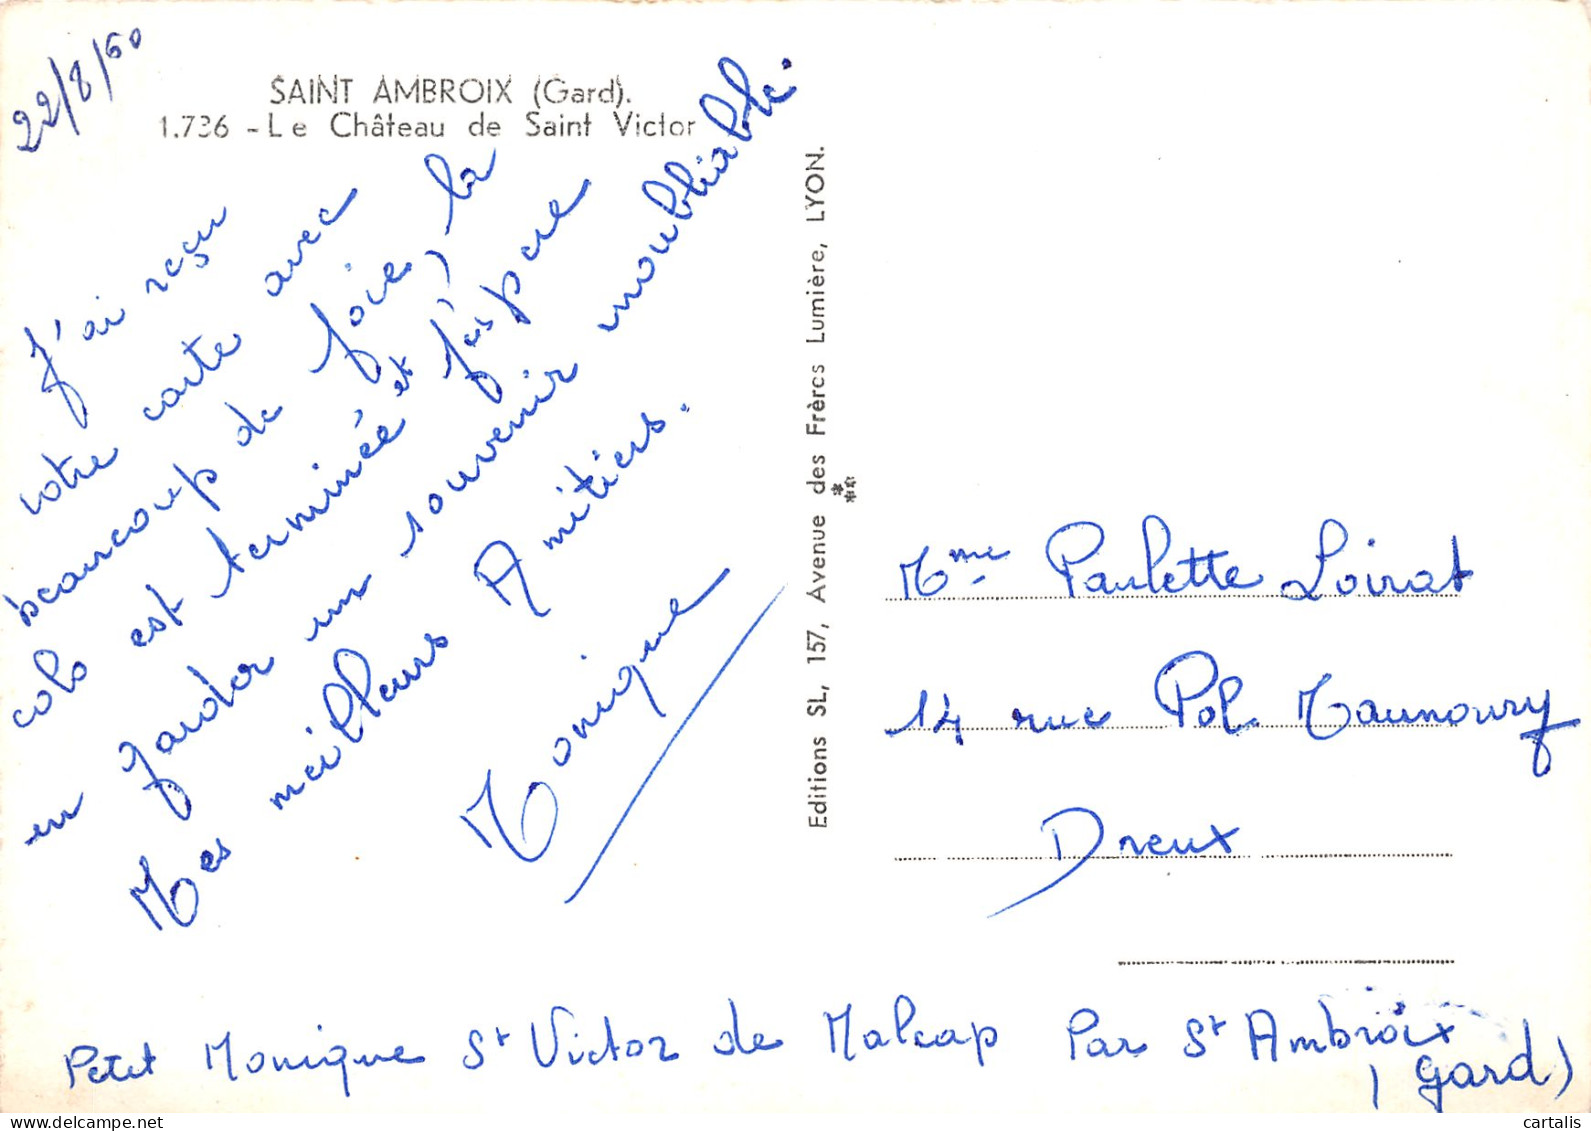 22/8/60
SAINT AMBROIX (Gard).
1.736 - Le Château de Saint Victor
J'ai reçu
votre carte avec
beaucoup de joie, la
colo est terminée et j'espere
en garder un souvenir inoubliable.
Mes meilleurs Amitiers.
Monique
Editions SL, 157, Avenue des Frères Lumière, LYON.
Mme Paulette Loirat
14 rue Pol Maunoury
Dreux
Petit Monique St Victor de Malcap Par St Ambroix
(Gard)
cartalis